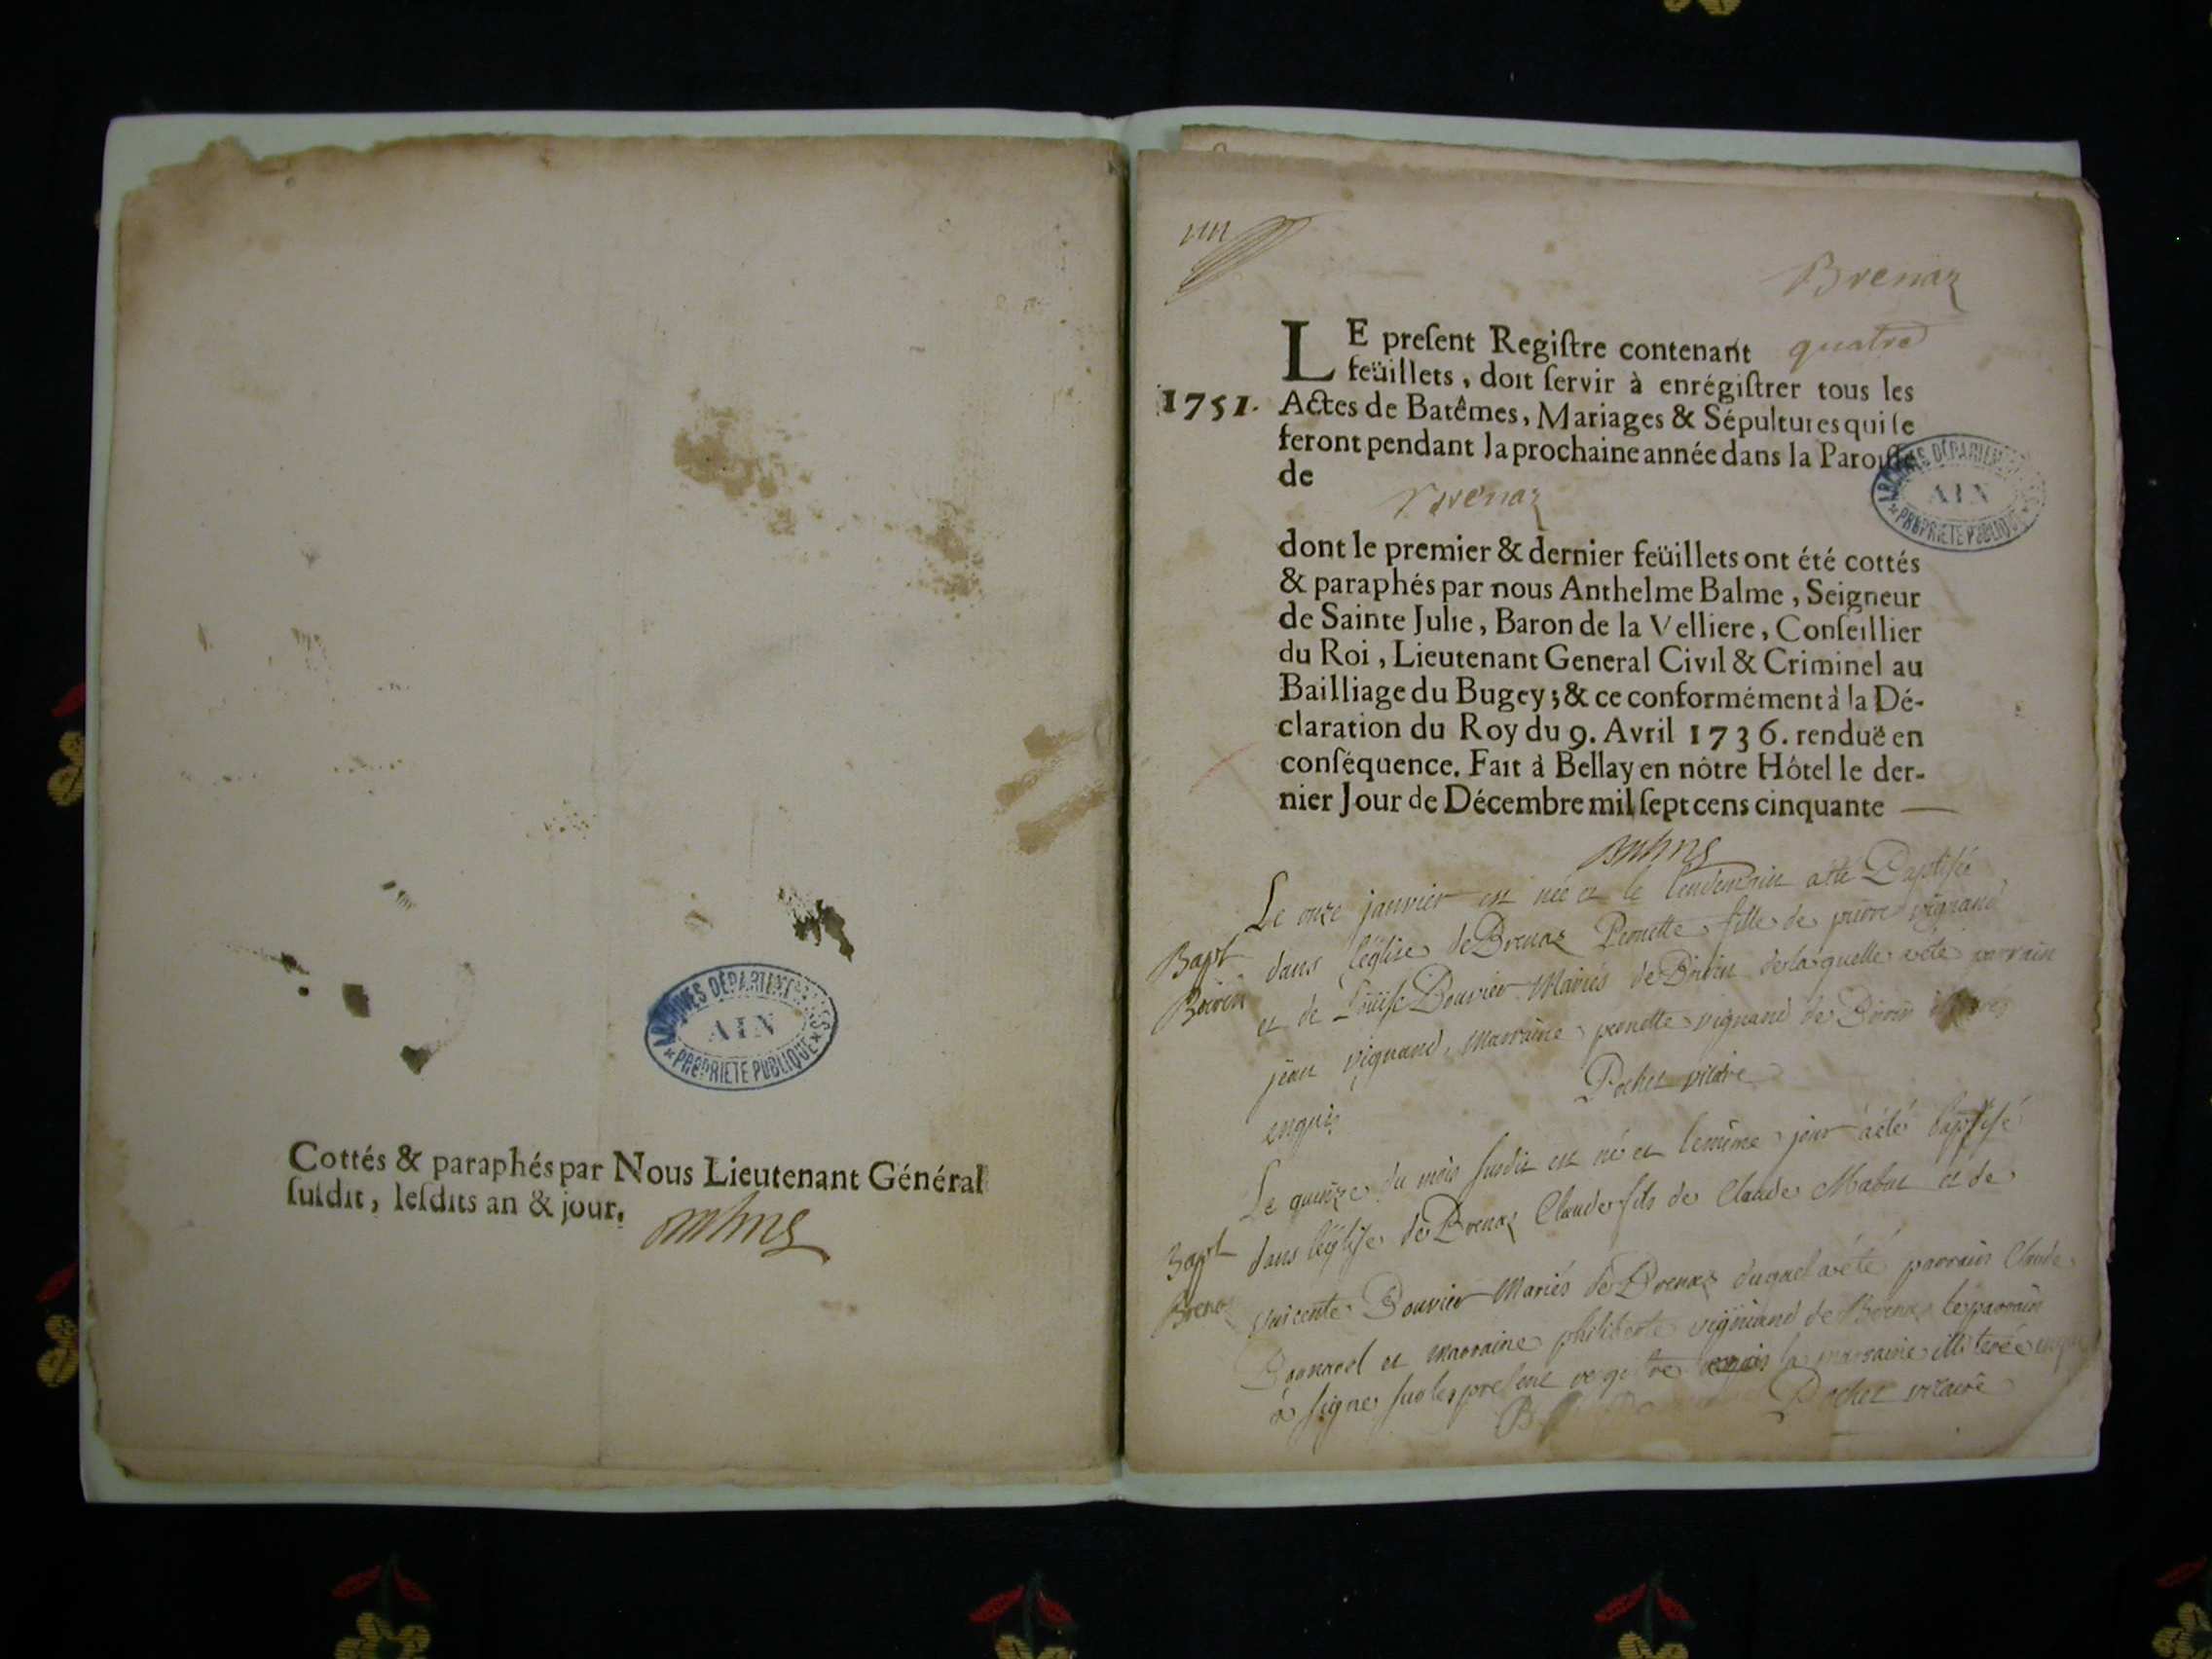 ARCHIVES DÉPARTEMENTALES
AIN
* PROPRIETE PUBLIQUE *
Cottés & paraphés par Nous Lieutenant Général
ſuſdit, leſdits an & jour.
Brenaz
LE preſent Regiſtre contenant quatre
feüillets, doit ſervir à enrégiſtrer tous les
1751. Actes de Batêmes, Mariages & Sépultures qui ſe
feront pendant la prochaine année dans la Paroiſſe
de
Brenaz
ARCHIVES DÉPARTEMENTALES
AIN
* PROPRIETE PUBLIQUE *
dont le premier & dernier feüillets ont été cottés
& paraphés par nous Anthelme Balme, Seigneur
de Sainte Julie, Baron de la Velliere, Conſeillier
du Roi, Lieutenant General Civil & Criminel au
Bailliage du Bugey; & ce conformément à la Dé-
claration du Roy du 9. Avril 1736. renduë en
conſéquence. Fait à Bellay en nôtre Hôtel le der-
nier Jour de Décembre mil ſept cens cinquante —
Le onze janvier est née et le lendemain a été Baptisée
Bapt dans l'église de Brenaz Penette fille de pierre vignand
et de Louise Bouvier Mariés de de laquelle a été parrain
jean vignand, marraine penette vignand de
enquis
Pochet vicaire
Le quinze du mois susdit est né et le même jour a été baptisé
Bapt dans l'église de Brenaz Claude fils de Claude Mabut et de
Brenaz vincente Bouvier Mariés de Brenaz duquel a été parrain Claude
et marraine philiberte vigniand de Brenaz le parrain
a signé sur le present registre la marraine illiterée
Pochet vicaire